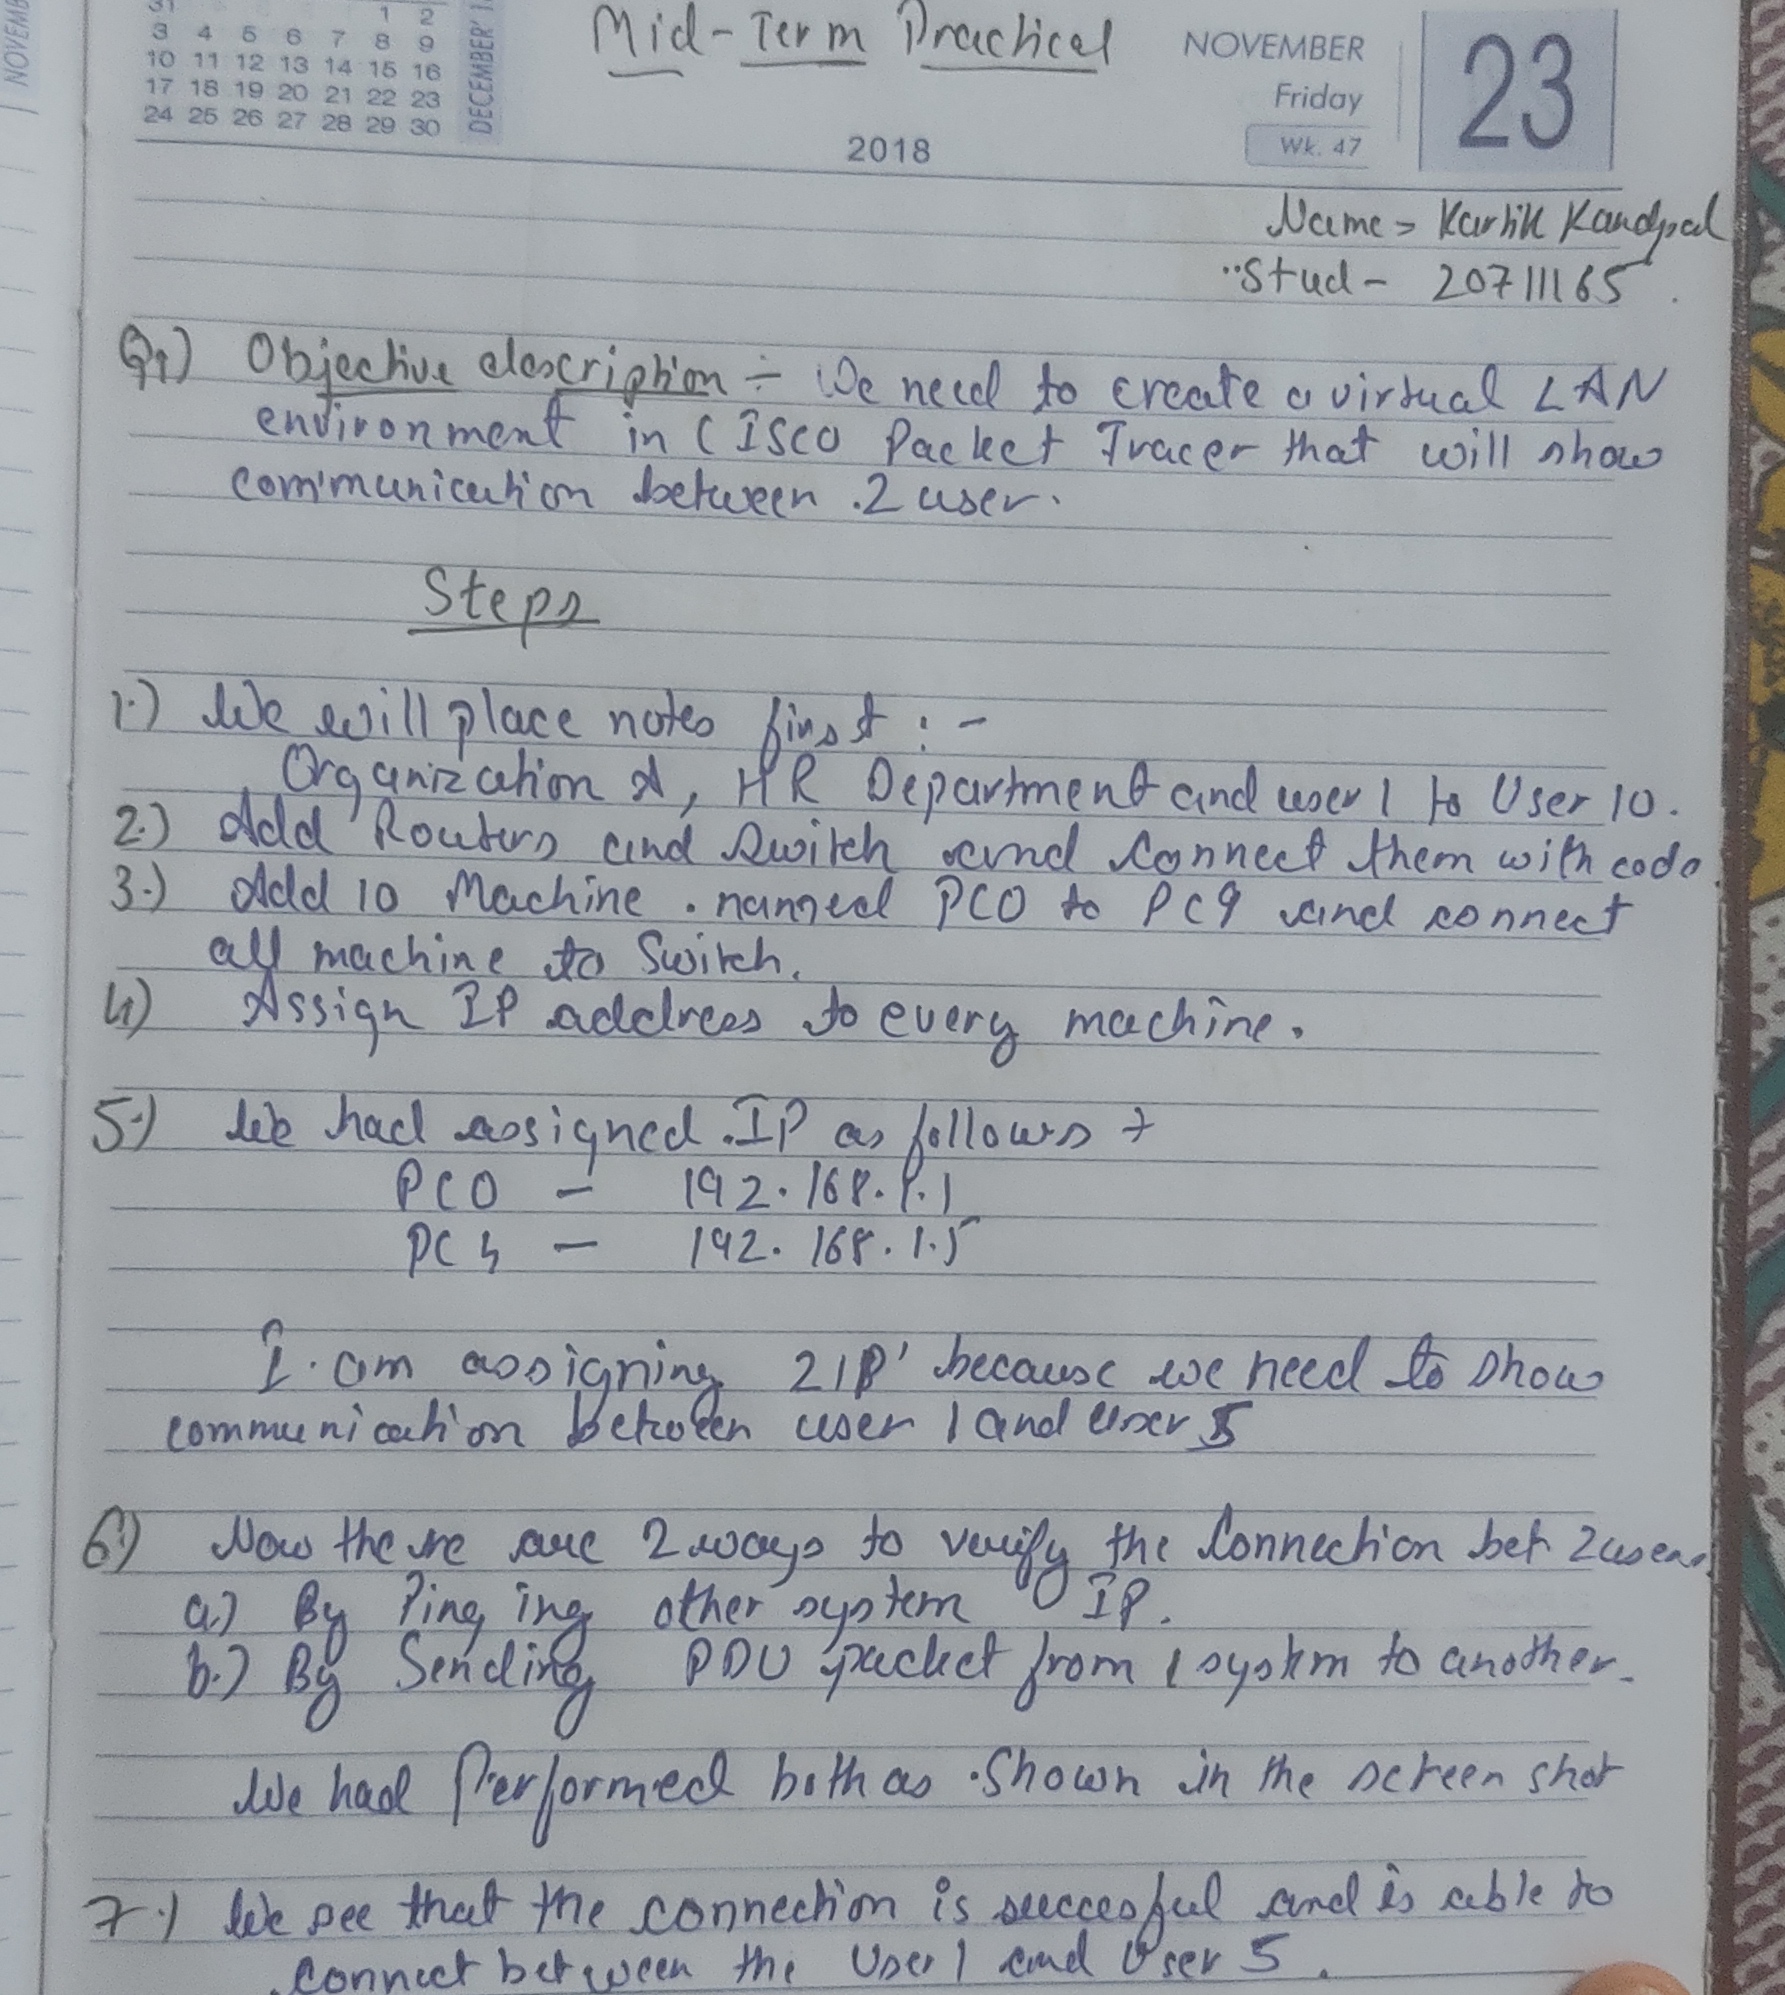 NOVEMB
31 1 2
3 4 5 6 7 8 9
10 11 12 13 14 15 16
17 18 19 20 21 22 23
24 25 26 27 28 29 30
DECEMBER'
Mid-Term Practical
NOVEMBER
Friday
Wk. 47
23
2018
Name = Kartik Kandpal
Stud - 20711165
Q1) Objective description ÷ We need to create a virtual LAN
environment in CISCO Packet Tracer that will show
communication between 2 user.
Steps
1.) We will place notes first :-
Organization A, HR Department and user 1 to User 10.
2.) Add Routers and Switch and connect them with code.
3.) Add 10 Machine. named PC0 to PC9 and connect
all machine to Switch.
4) Assign IP address to every machine.
5.) We had assigned IP as follows
PC0 - 192.168.1.1
PC4 - 192.168.1.5
I am assigning 2 IP' because we need to show
communication between user 1 and User 5
6.) Now there are 2 ways to verify the Connection bet 2 users
a.) By Pinging other system IP.
b.) By Sending PDU packet from 1 system to another.
We had Performed both as shown in the screen shot
7.) We see that the connection is successful and is able to
connect between the User 1 and User 5.